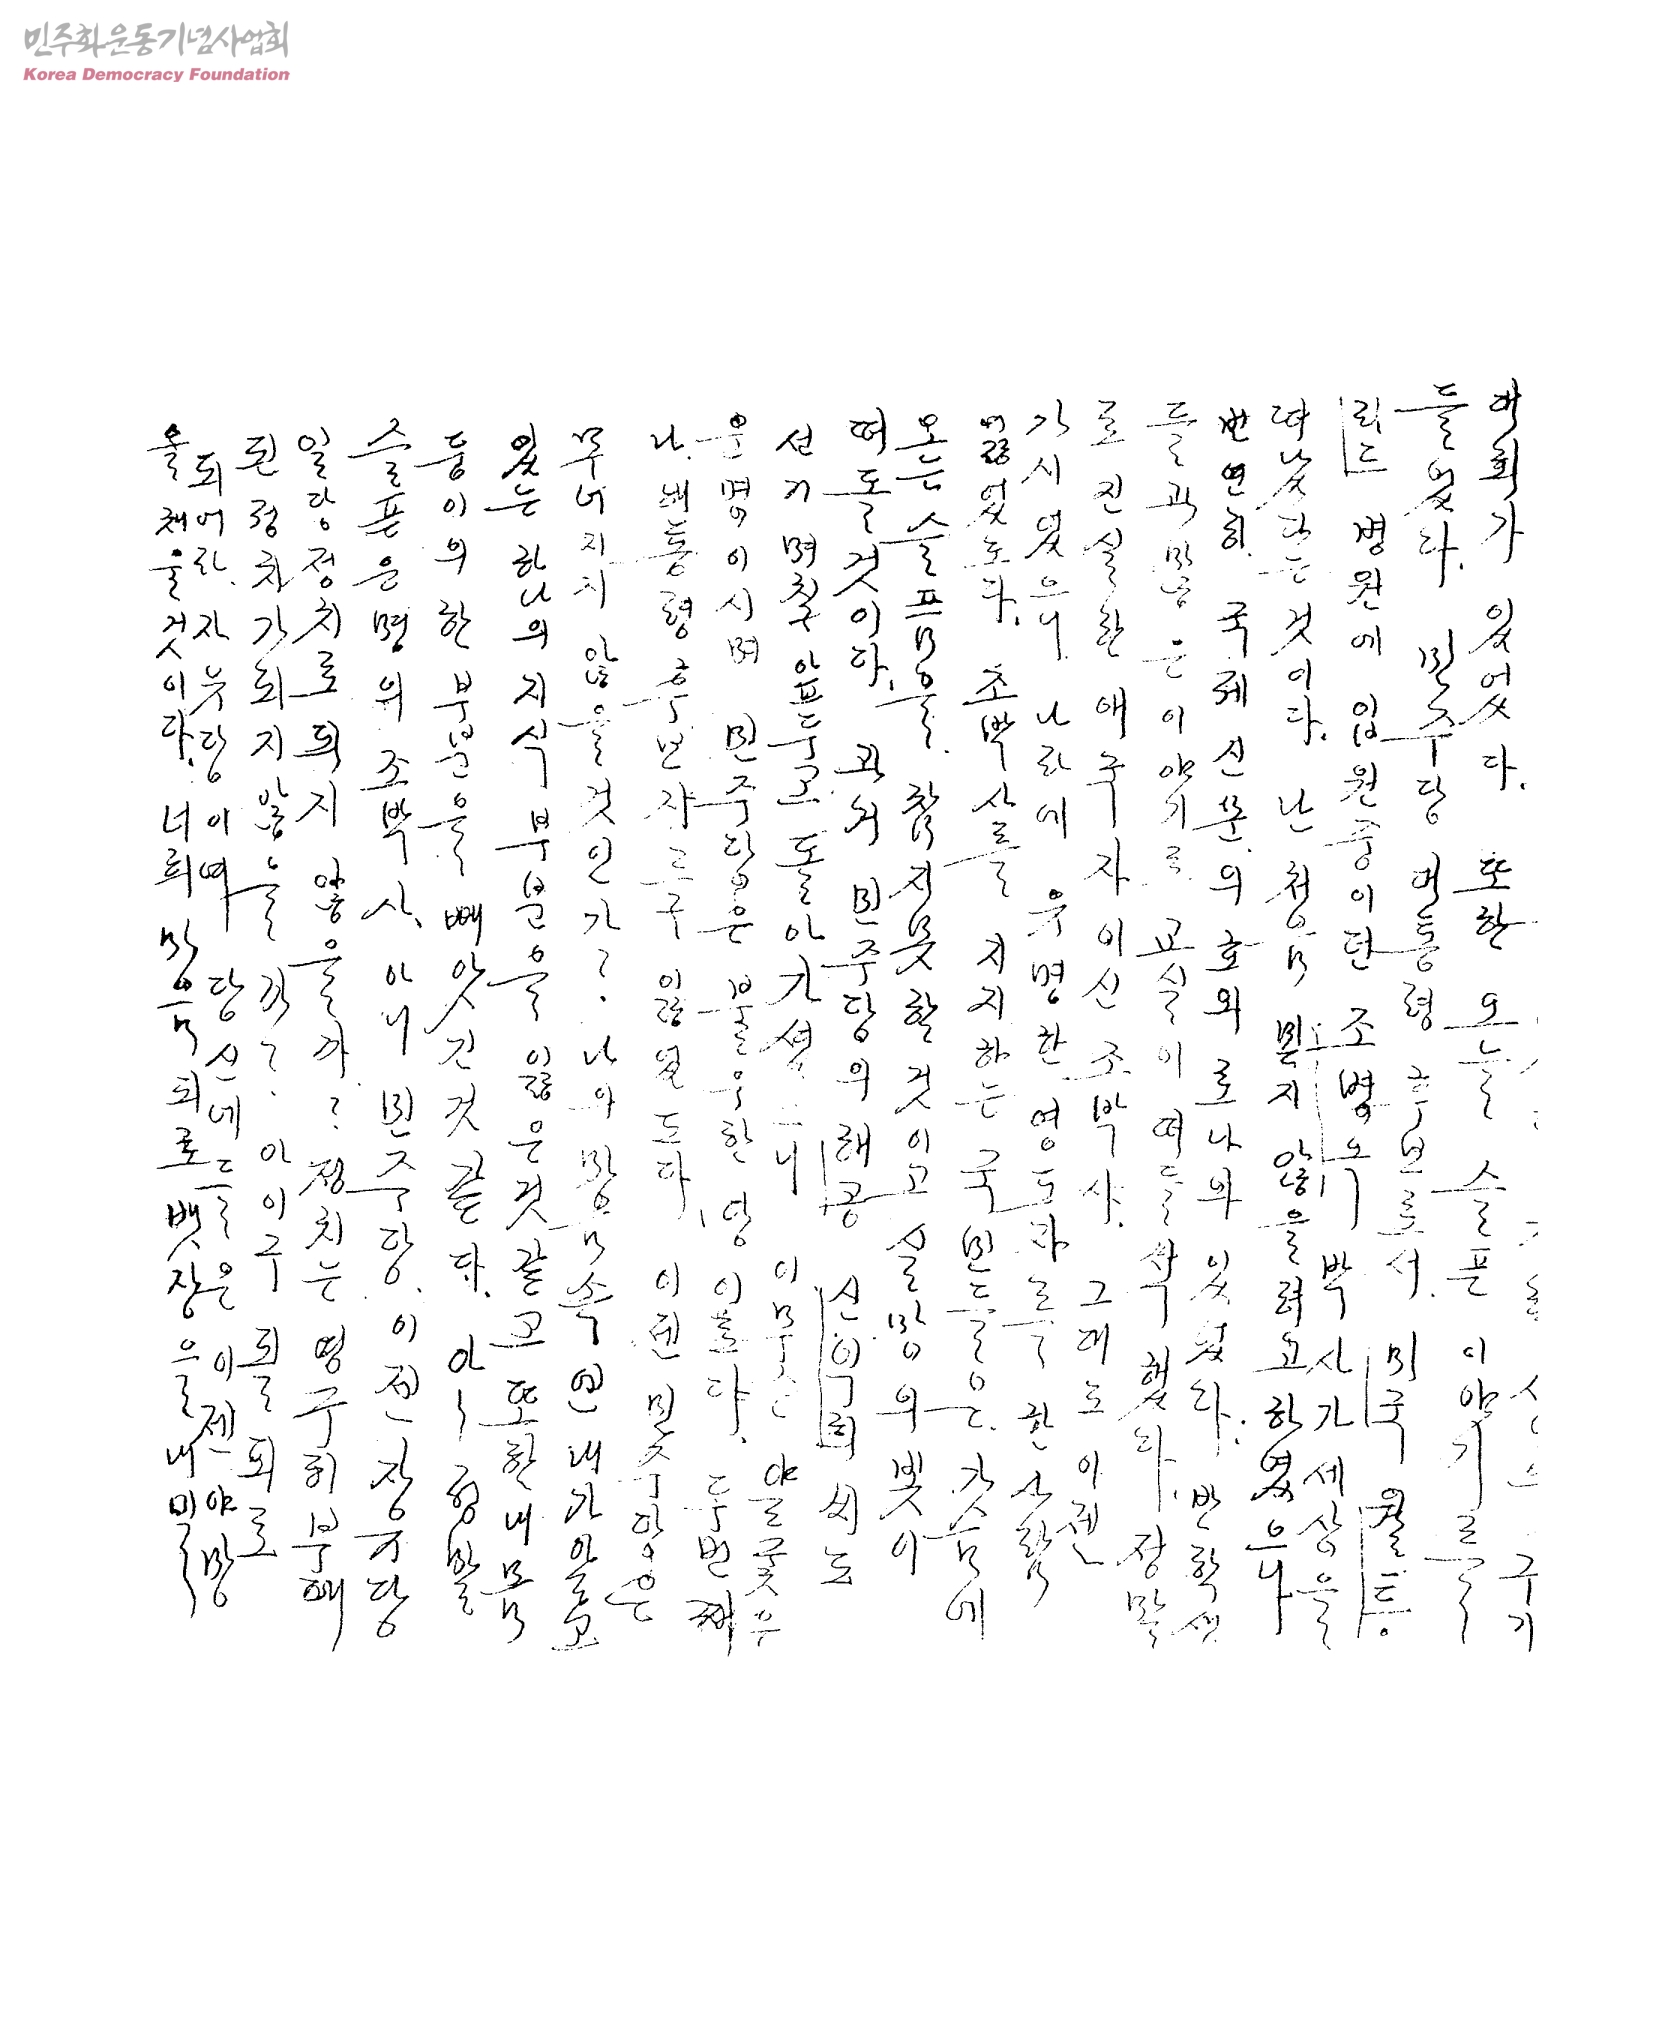 민주화운동기념사업회
Korea Democracy Foundation
구기
대회가 있었다. 또한 오늘 슬픈 이야기를
들었다. 민주당 대통령 후보로서. 미국 월트
리드 병원에 입원중이던 조병옥 박사가 세상을
떠났다는 것이다. 난 처음 믿지 않을려고 하였으나
번연히. 국제 신문의 호외로 나와 있었다. 반 학생
들과 많은 이야기로 교실이 떠들석 했다. 정말
로 진실한 애국자이신 조박사. 그래도 이젠
가시였으니 나라에 유명한 영도자로 한 사람
잃었도다. 조박사를 지지하는 국민들은. 가슴에
오는 슬픔을. 참지 못할 것이고 실망의 빛이
떠돌것이다. 과거 민주당의 해공 신익희씨도
선거 며칠 앞두고 돌아가셨으니 이 무슨 얄굳은
운명이시며 민주당은 불우한 당이올다. 두번째
나. 대통령 후보자 구 잃었도다. 이젠 민주당은
무너지지 않을것인가? 나의 마음속 연내가 알고
있는 하나의 지식 부분을 잃은것 같고 또한 내 몸
둥이의 한 부분을 빼앗긴것 같다. 아 정말
슬픈 운명의 조박사. 아니 민주당. 이젠 장 당
일당정치로 되지 않을까? 정치는 영구히 부패
된 정치가 되지 않을까? 아이구 되로
되어라. 자유당이여 당신네들은 이젠 야망
을 채울것이다. 너희 마음 되로 뱃장을 내